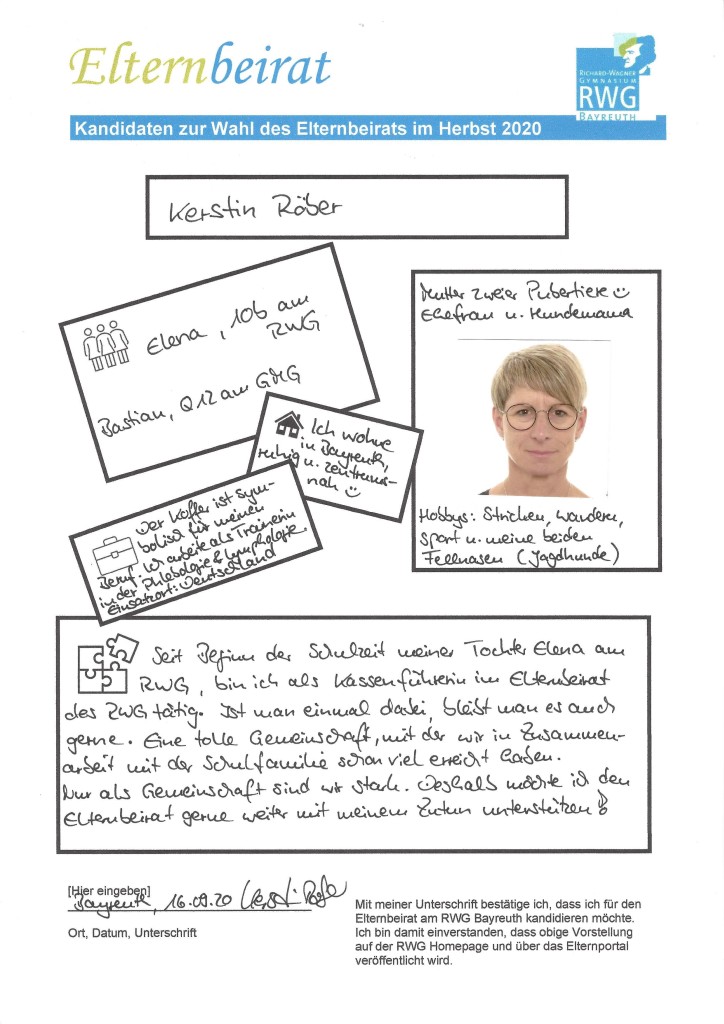 Elternbeirat
RICHARD-WAGNER
GYMNASIUM
RWG
BAYREUTH
Kandidaten zur Wahl des Elternbeirats im Herbst 2020
Kerstin Röber
Elena, 10b am
RWG
Bastian, Q12 am GMG
Ich wohne
in Bayreuth,
ruhig u. zentrums-
nah ☺
Der Koffer ist sym-
bolisch für meinen
Beruf: Ich arbeite als Trainerin
in der Phlebologie & Lymphologie.
Einsatzort: Deutschland
Mutter zweier Pubertiere ☺
Ehefrau u. Hundemama
Hobbys: Stricken, Wandern,
Sport u. meine beiden
Fellnasen (Jagdhunde)
Seit Beginn der Schulzeit meiner Tochter Elena am
RWG, bin ich als Kassenführerin im Elternbeirat
des RWG tätig. Ist man einmal dabei, bleibt man es auch
gerne. Eine tolle Gemeinschaft, mit der wir in Zusammen-
arbeit mit der Schulfamilie schon viel erreicht haben.
Nur als Gemeinschaft sind wir stark. Deshalb möchte ich den
Elternbeirat gerne weiter mit meinem Zutun unterstützen!
[Hier eingeben]
Bayreuth, 16.09.20 Kerstin Röber
Ort, Datum, Unterschrift
Mit meiner Unterschrift bestätige ich, dass ich für den
Elternbeirat am RWG Bayreuth kandidieren möchte.
Ich bin damit einverstanden, dass obige Vorstellung
auf der RWG Homepage und über das Elternportal
veröffentlicht wird.